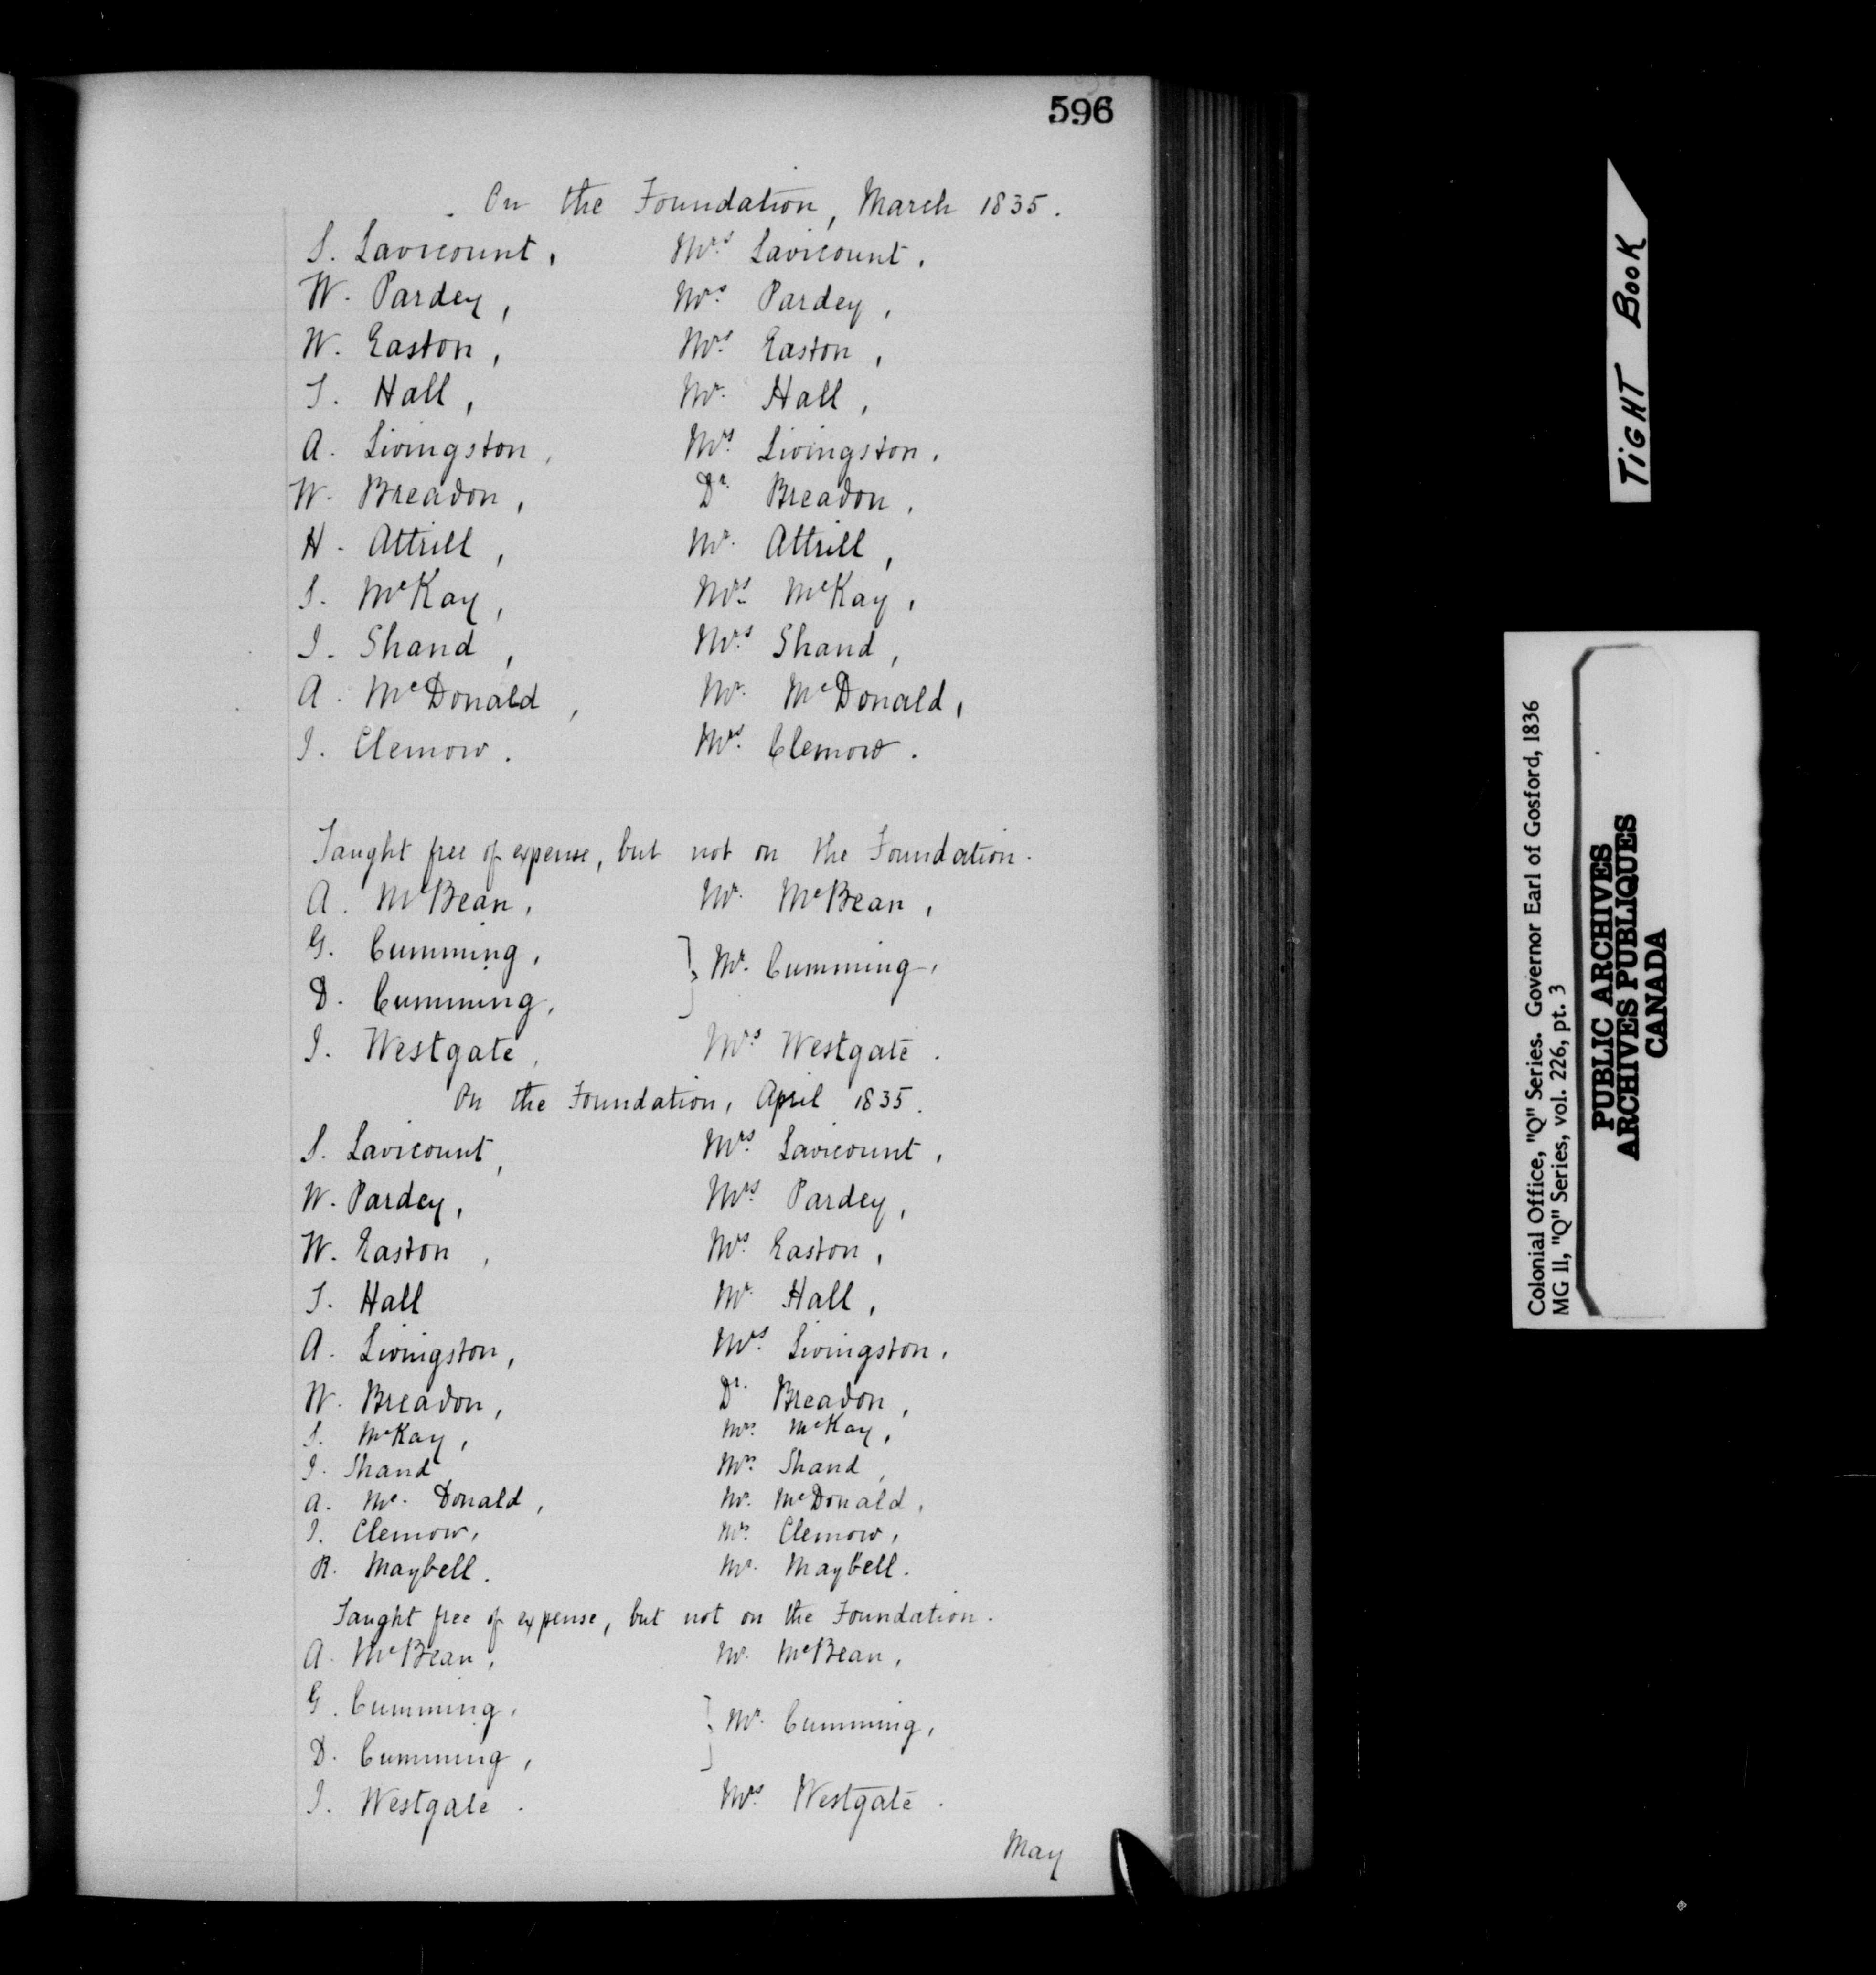 596
On the Foundation, March 1835.
S. Lavicount, Mrs. Lavicount,
W. Pardey, Mrs. Pardey,
W. Easton, Mrs. Easton,
T. Hall, Mr. Hall,
A. Livingston, Mrs. Livingston,
W. Breadon, Dr. Breadon,
H. Attrill, Mr. Attrill,
S. McKay, Mrs. McKay,
J. Shand, Mrs. Shand,
A. McDonald, Mr. McDonald,
J. Clemow. Mrs. Clemow.
Taught free of expense, but not on the Foundation.
A. McBean, Mr. McBean,
G. Cumming, } Mr. Cumming,
D. Cumming,
J. Westgate, Mrs. Westgate.
On the Foundation, April 1835.
S. Lavicount, Mrs. Lavicount,
W. Pardey, Mrs. Pardey,
W. Easton, Mrs. Easton,
T. Hall Mr. Hall,
A. Livingston, Mrs. Livingston,
W. Breadon, Dr. Breadon,
S. McKay, Mrs. McKay,
J. Shand Mrs. Shand,
A. Mc. Donald, Mr. McDonald,
J. Clemow, Mrs. Clemow,
R. Maybell. Mr. Maybell.
Taught free of expense, but not on the Foundation.
A. McBean, Mr. McBean,
G. Cumming, } Mr. Cumming,
D. Cumming,
J. Westgate. Mrs. Westgate.
May
TIGHT BOOK
Colonial Office, "Q" Series. Governor Earl of Gosford, 1836
MG 11, "Q" Series, vol. 226, pt. 3
PUBLIC ARCHIVES
ARCHIVES PUBLIQUES
CANADA